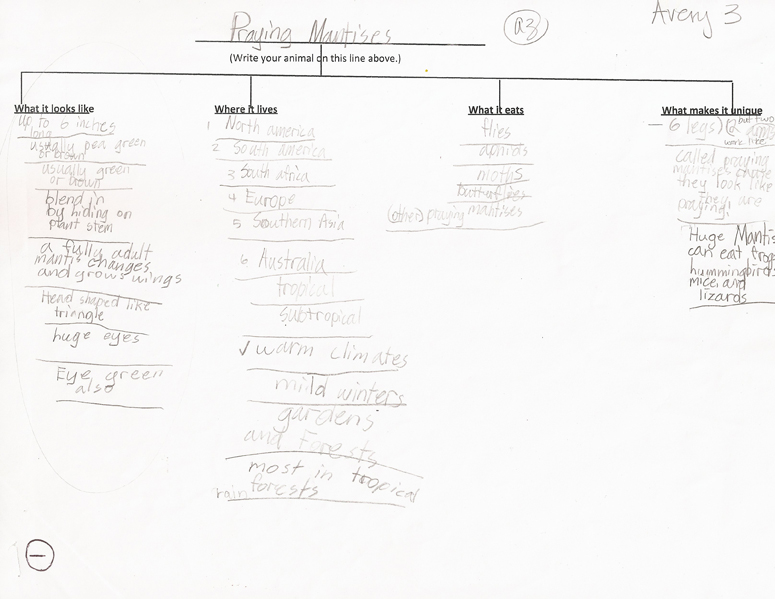 Praying Mantises
a3
Avery 3
(Write your animal on this line above.)
What it looks like
up to 6 inches
long
usually pea green
or brown
usually green
or brown
blend in
by hiding on
plant stem
a fully adult
mantis changes
and grows wings
Head shaped like
triangle
huge eyes
Eye green
also
Where it lives
1 North america
2 South america
3 South africa
4 Europe
5 Southern Asia
6 Australia
tropical
subtropical
✓ warm climates
mild winters
gardens
and Forests
most in tropical
rain forests
What it eats
flies
aphids
moths
butterflies
(other) praying mantises
What makes it unique
6 legs) but two
work like
called praying
mantises
they look like
they are
praying!
Huge Mantis
can eat frogs
hummingbirds
mice, and
lizards